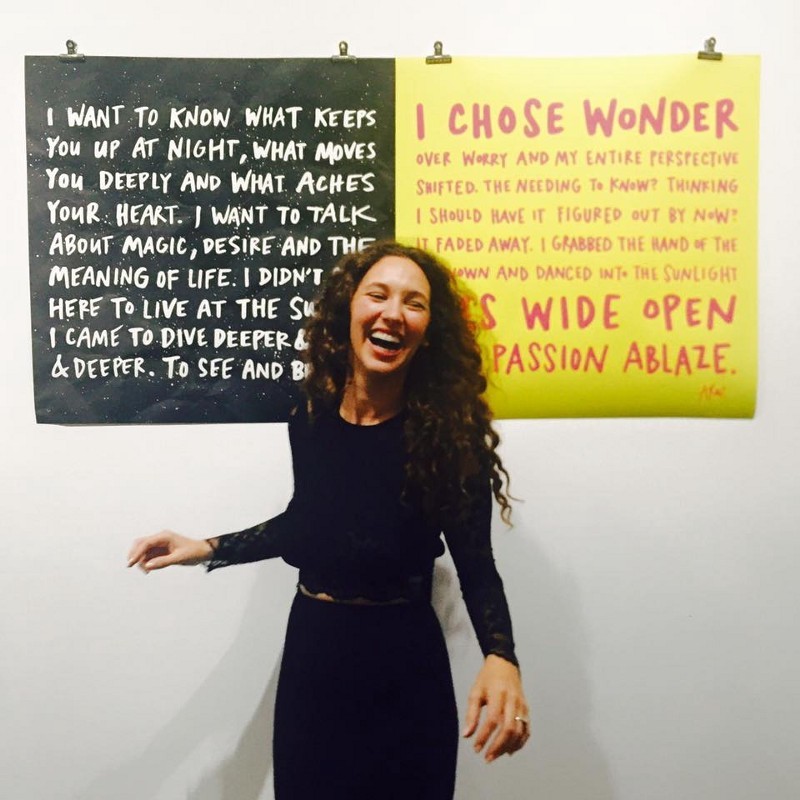 I WANT TO KNOW WHAT KEEPS
YOU UP AT NIGHT, WHAT MOVES
YOU DEEPLY AND WHAT ACHES
YOUR HEART. I WANT TO TALK
ABOUT MAGIC, DESIRE AND THE
MEANING OF LIFE. I DIDN'T
HERE TO LIVE AT THE
I CAME TO DIVE DEEPER &
& DEEPER. TO SEE AND
I CHOSE WONDER
OVER WORRY AND MY ENTIRE PERSPECTIVE
SHIFTED. THE NEEDING TO KNOW? THINKING
I SHOULD HAVE IT FIGURED OUT BY NOW?
IT FADED AWAY. I GRABBED THE HAND OF THE
AND DANCED INTO THE SUNLIGHT
WIDE OPEN
PASSION ABLAZE.